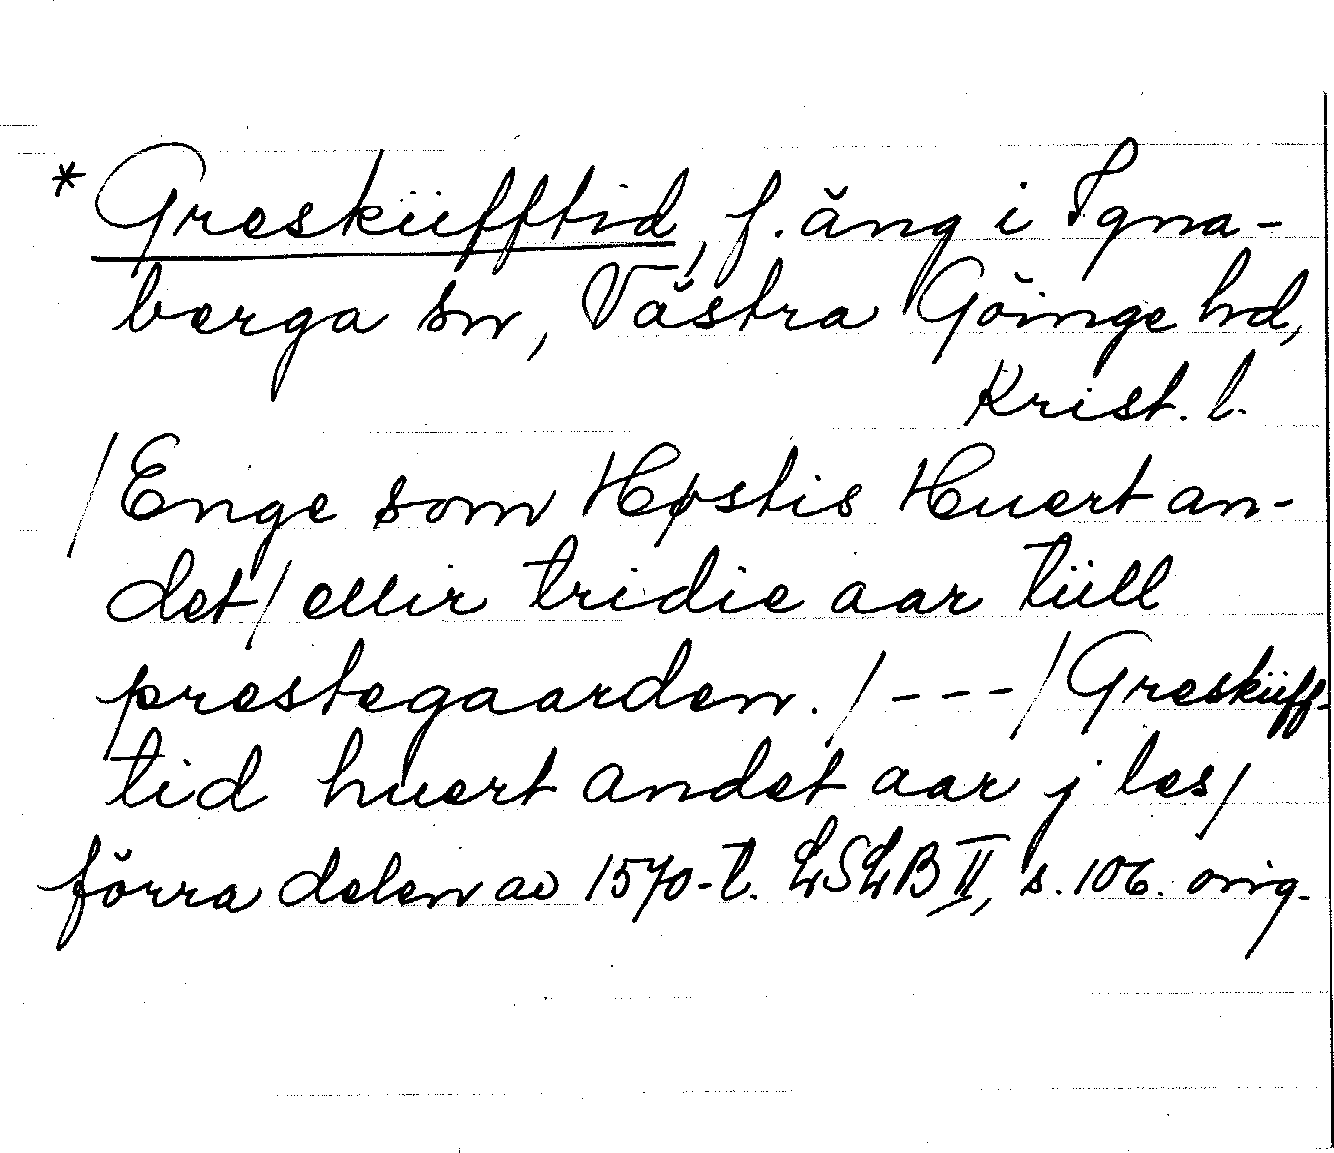 * Gresküfftid, f. äng i Igna-
berga sn, Västra Göinge hd,
Krist. l.
/Enge som Høstis Huert an-
det/ ellir tridie aar tüll
prestegaarden. /---/ Gresküff-
tid huert andet aar j les/
förra delen av 1570-t. LSLB II, s. 106. orig.